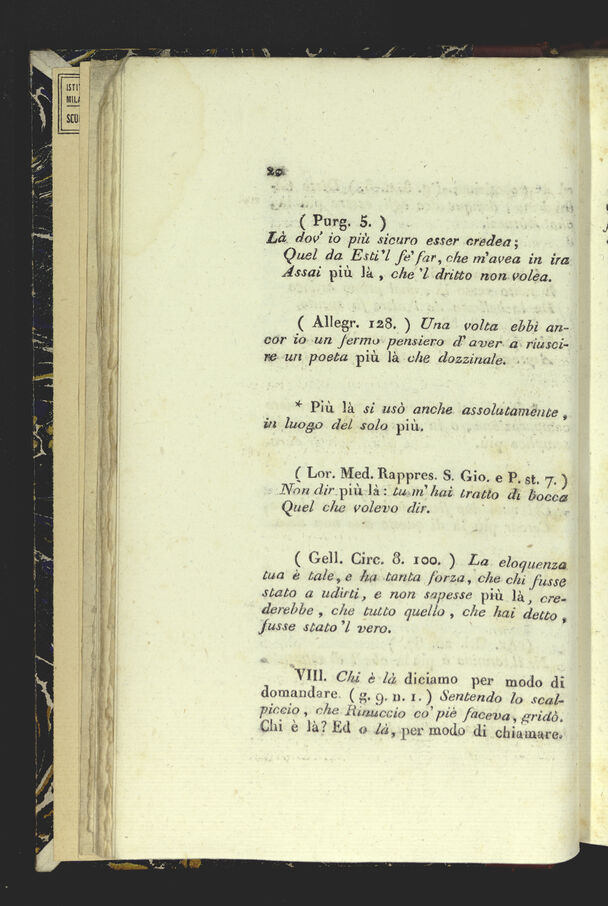 ISTI
MILA
SCU
20
( Purg. 5. )
Là dov' io più sicuro esser credea ;
Quel da Esti 'l fe' far, che m'avea in ira
Assai più là , che 'l dritto non volea.
( Allegr. 128. ) Una volta ebbi an-
cor io un fermo pensiero d' aver a riusci-
re un poeta più là che dozzinale.
* Più là si usò anche assolutamente ,
in luogo del solo più.
( Lor. Med. Rappres. S. Gio. e P. st. 7. )
Non dir più là : tu m' hai tratto di bocca
Quel che volevo dir.
( Gell. Circ. 8. 100. ) La eloquenza
tua è tale, e ha tanta forza, che chi fusse
stato a udirti, e non sapesse più là, cre-
derebbe , che tutto quello , che hai detto ,
fusse stato 'l vero.
VIII. Chi è là diciamo per modo di
domandare ( g. 9. n. 1. ) Sentendo lo scal-
piccio , che Rinuccio co' piè faceva, gridò.
Chi è là? Ed o là, per modo di chiamare.